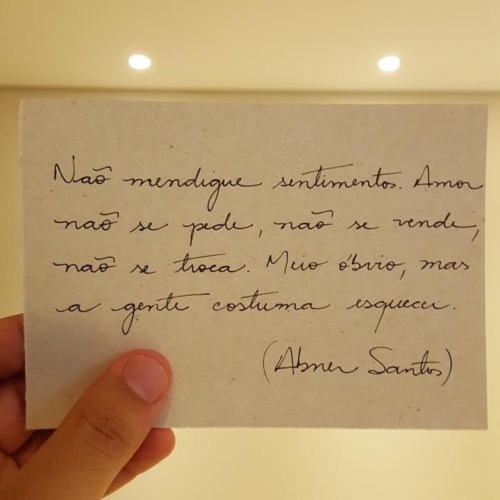 Não mendigue sentimentos. Amor
não se pede, não se vende,
não se troca. Meio óbvio, mas
a gente costuma esquecer.
(Abner Santos)